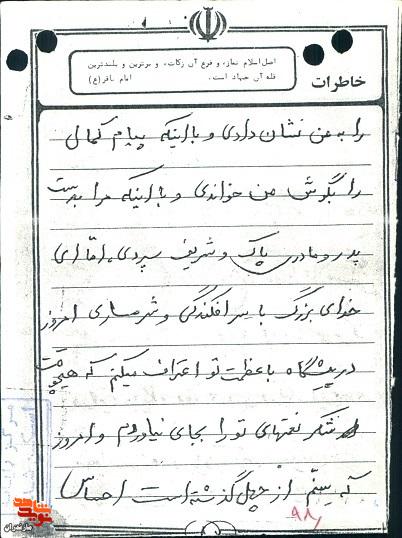 اصل اسلام نماز، و فرع آن زکات، و برترین و بلندترین
قله آن جهاد است. امام باقر (ع)
خاطرات
را به من نشان دادی و با اینکه پیام کمال
را بگوش من خواندی و با اینکه مرا بدست
پدر و مادری پاک و شریف سپردی، امّا ای
خدای بزرگ با سرافکندگی و شرمساری امروز
در پیشگاه با عظمت تو اعتراف میکنم که هیچوقت
شکر نعمتهای تو را بجای نیاوردم و امروز
که سنّم از چهل گذشته است احساس
۹۸